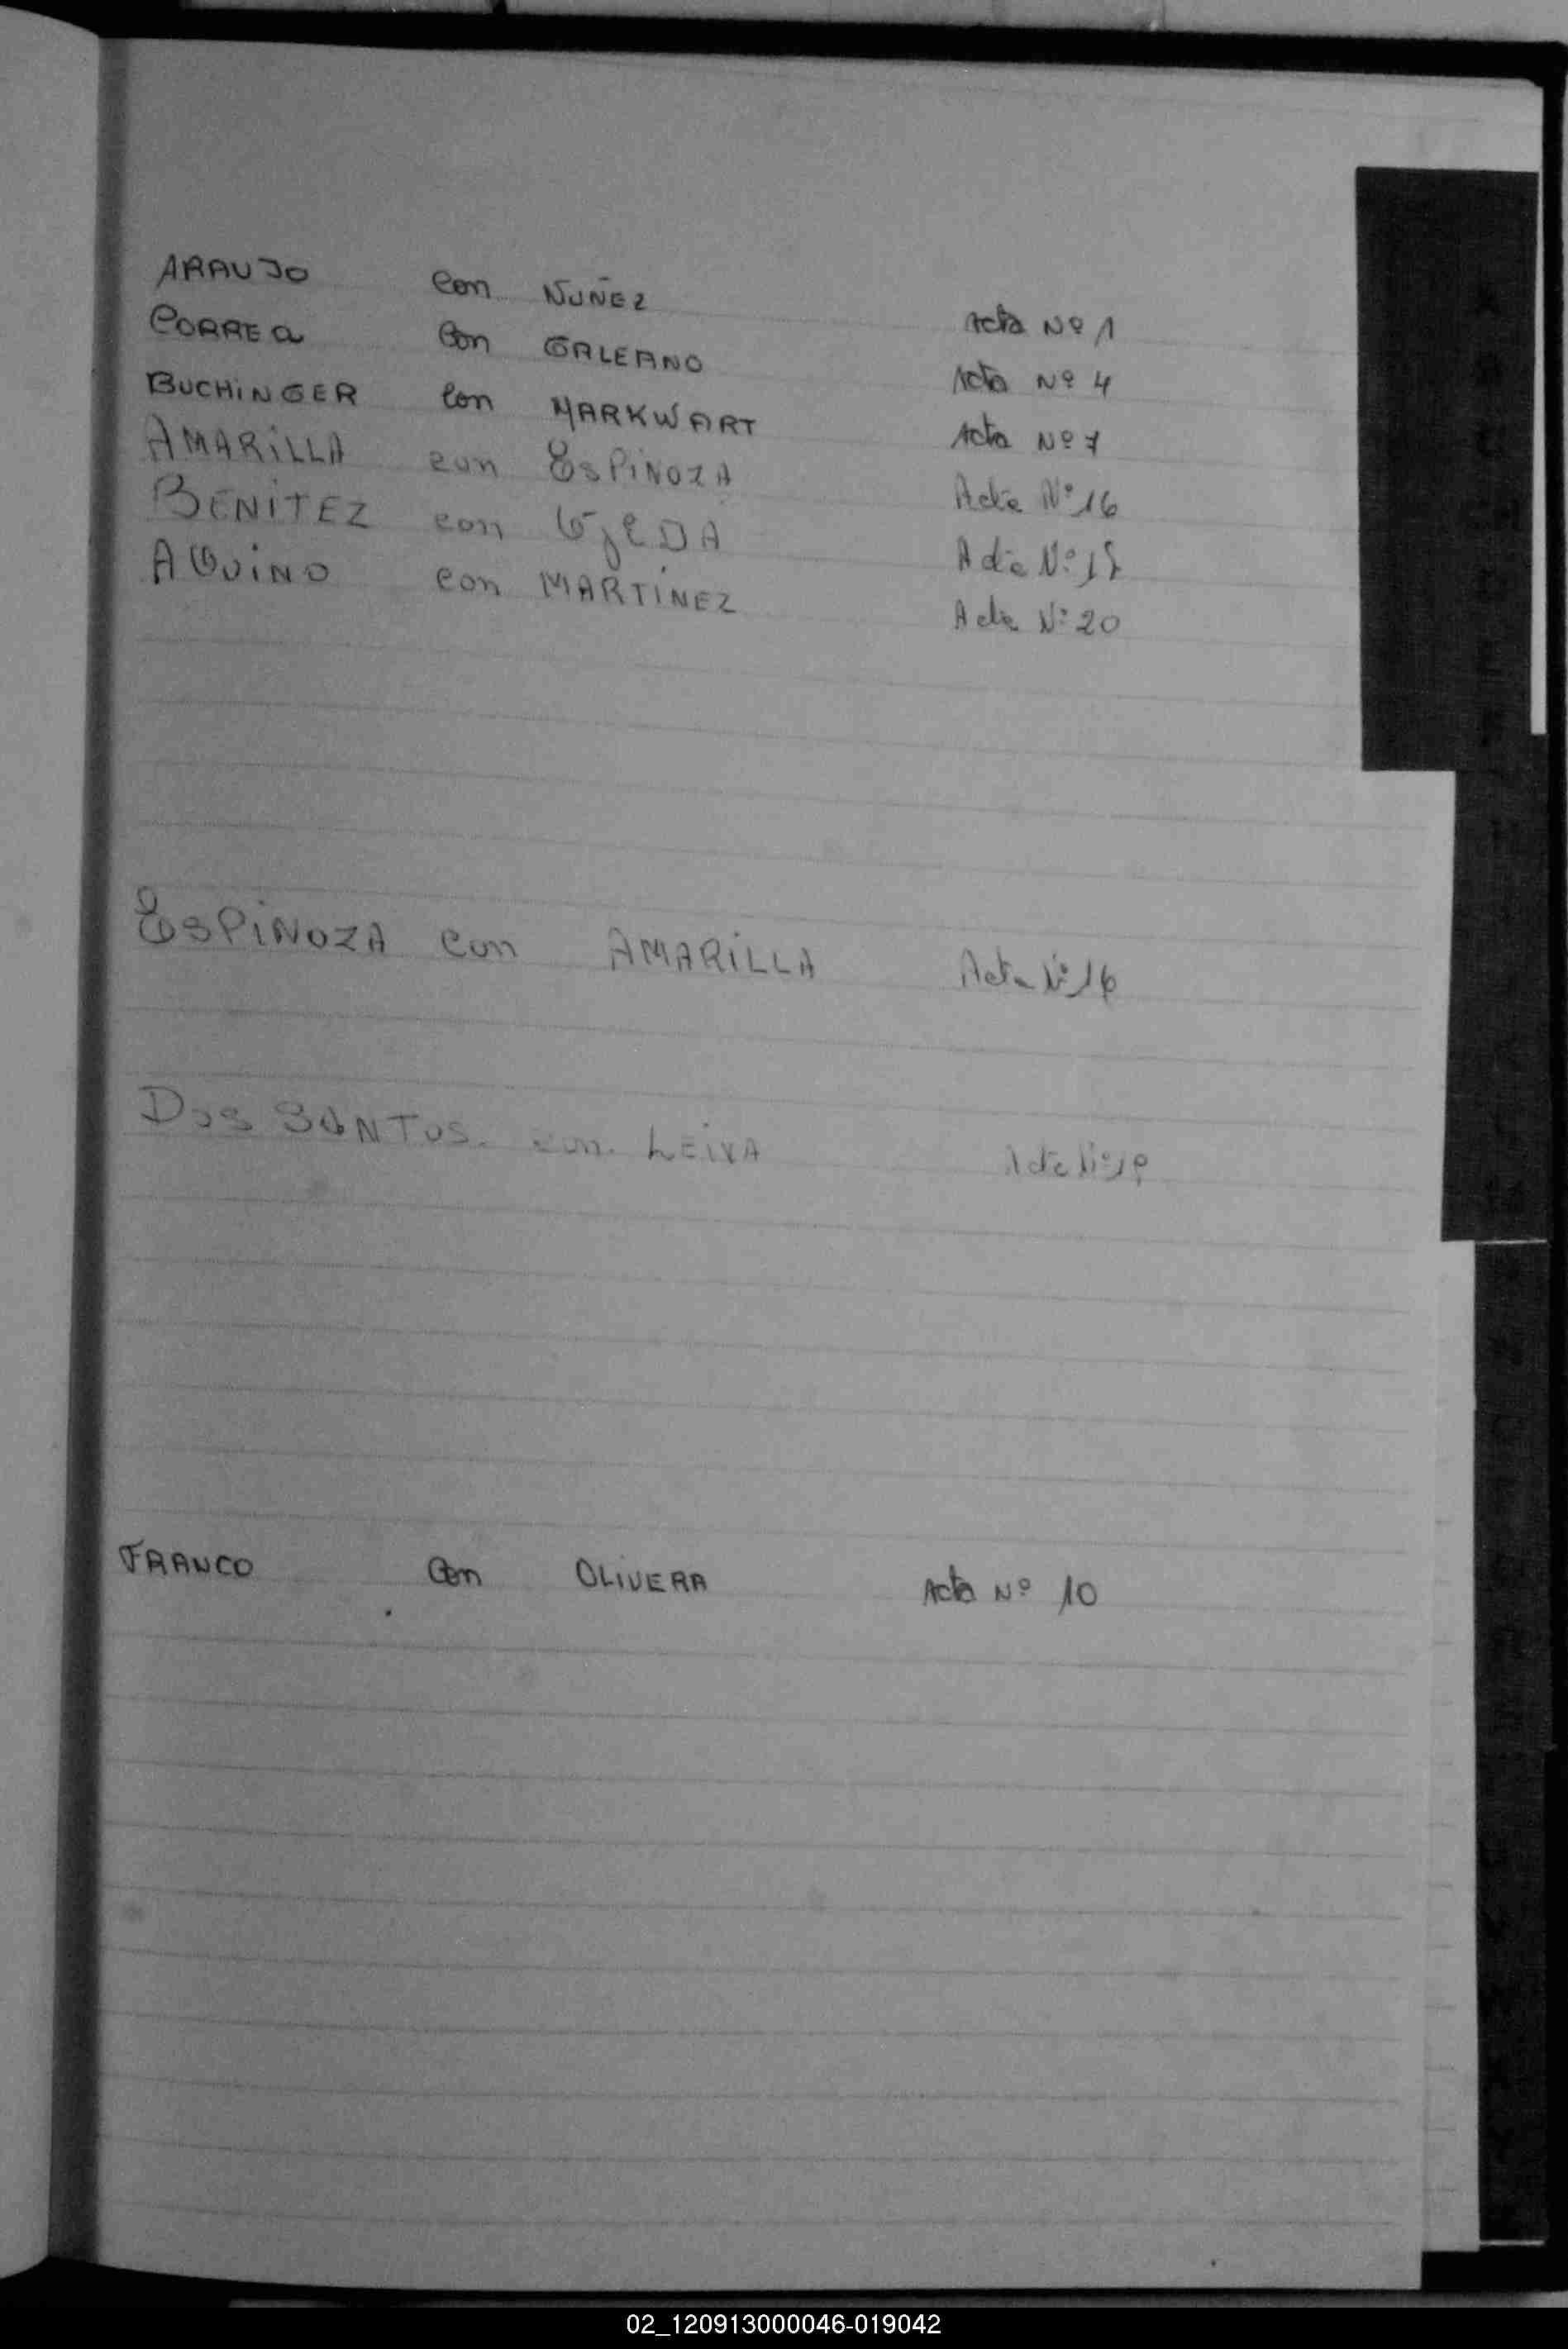 ARAUJO con NUÑEZ Acta Nº 1
CORREA con GALEANO Acta Nº 4
BUCHiNGER con MARKWART Acta Nº 7
AMARiLLA con ESPiNOZA Acta Nº 16
BENITEZ con OjEDA Acta Nº
AQUiNO con MARTINEZ Acta Nº 20
ESPiNOZA con AMARiLLA Acta Nº 16
DOS SANTOS. con. LEiVA Acta Nº
FRANCO con OLIVERA Acta Nº 10
02_120913000046-019042